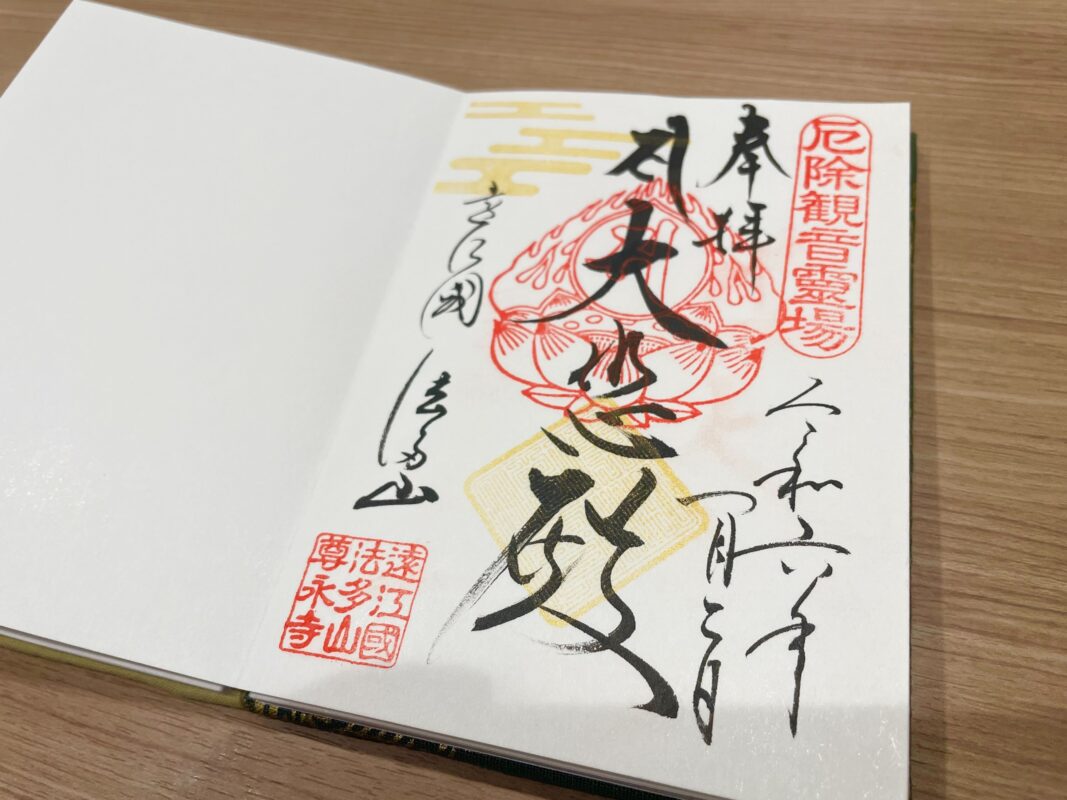 厄除観音靈場
奉拝
令和六年
一月二日
大悲殿
遠江國
法多山
遠江國
法多山
尊永寺